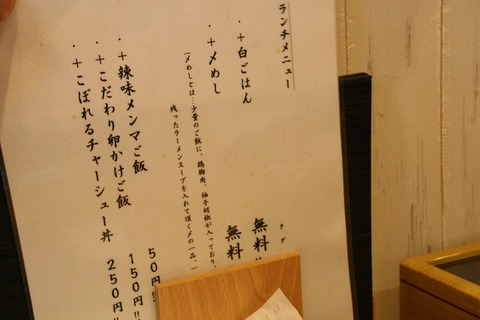 ランチメニュー
・+白ごはん 無料!!
タダ
・+〆めし 無料
(〆めしとは…少量のご飯に、鶏胸肉、柚子胡椒が入っており、
残ったラーメンスープを入れて頂く〆の一品。
・+辣味メンマご飯 50円!!
・+こだわり卵かけご飯 150円!!
・+こぼれるチャーシュー丼 250円!!